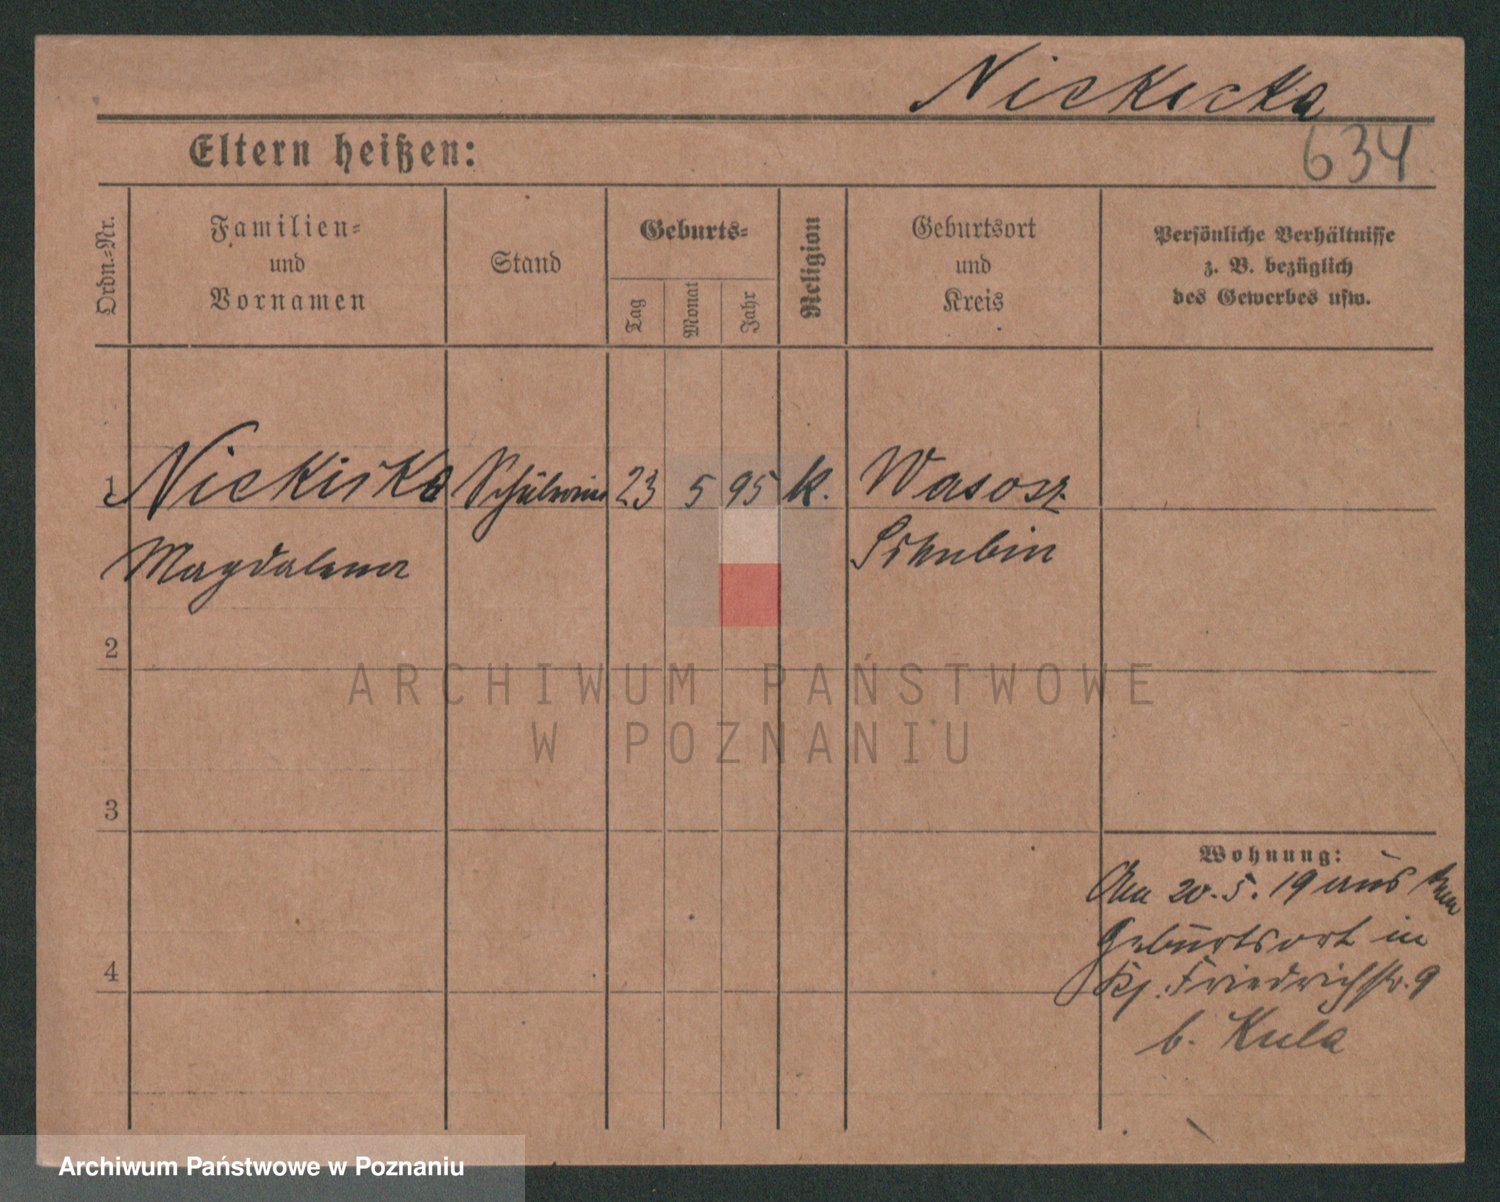 Nickicka
634
Eltern heißen:
Ordn.-Nr.
Familien-
und
Vornamen
Stand
Geburts-
Tag
Monat
Jahr
Religion
Geburtsort
und
Kreis
Persönliche Verhältnisse
z. B. bezüglich
des Gewerbes usw.
1 Nickiska Schülerin 23 5 95 k. Wasosz
Magdalena Schubin
2
ARCHIWUM PAŃSTWOWE
W POZNANIU
3
Wohnung:
Am 20.5.19 aus
Geburtsort in
Friedrichstr. 9
b. Kula
4
Archiwum Państwowe w Poznaniu